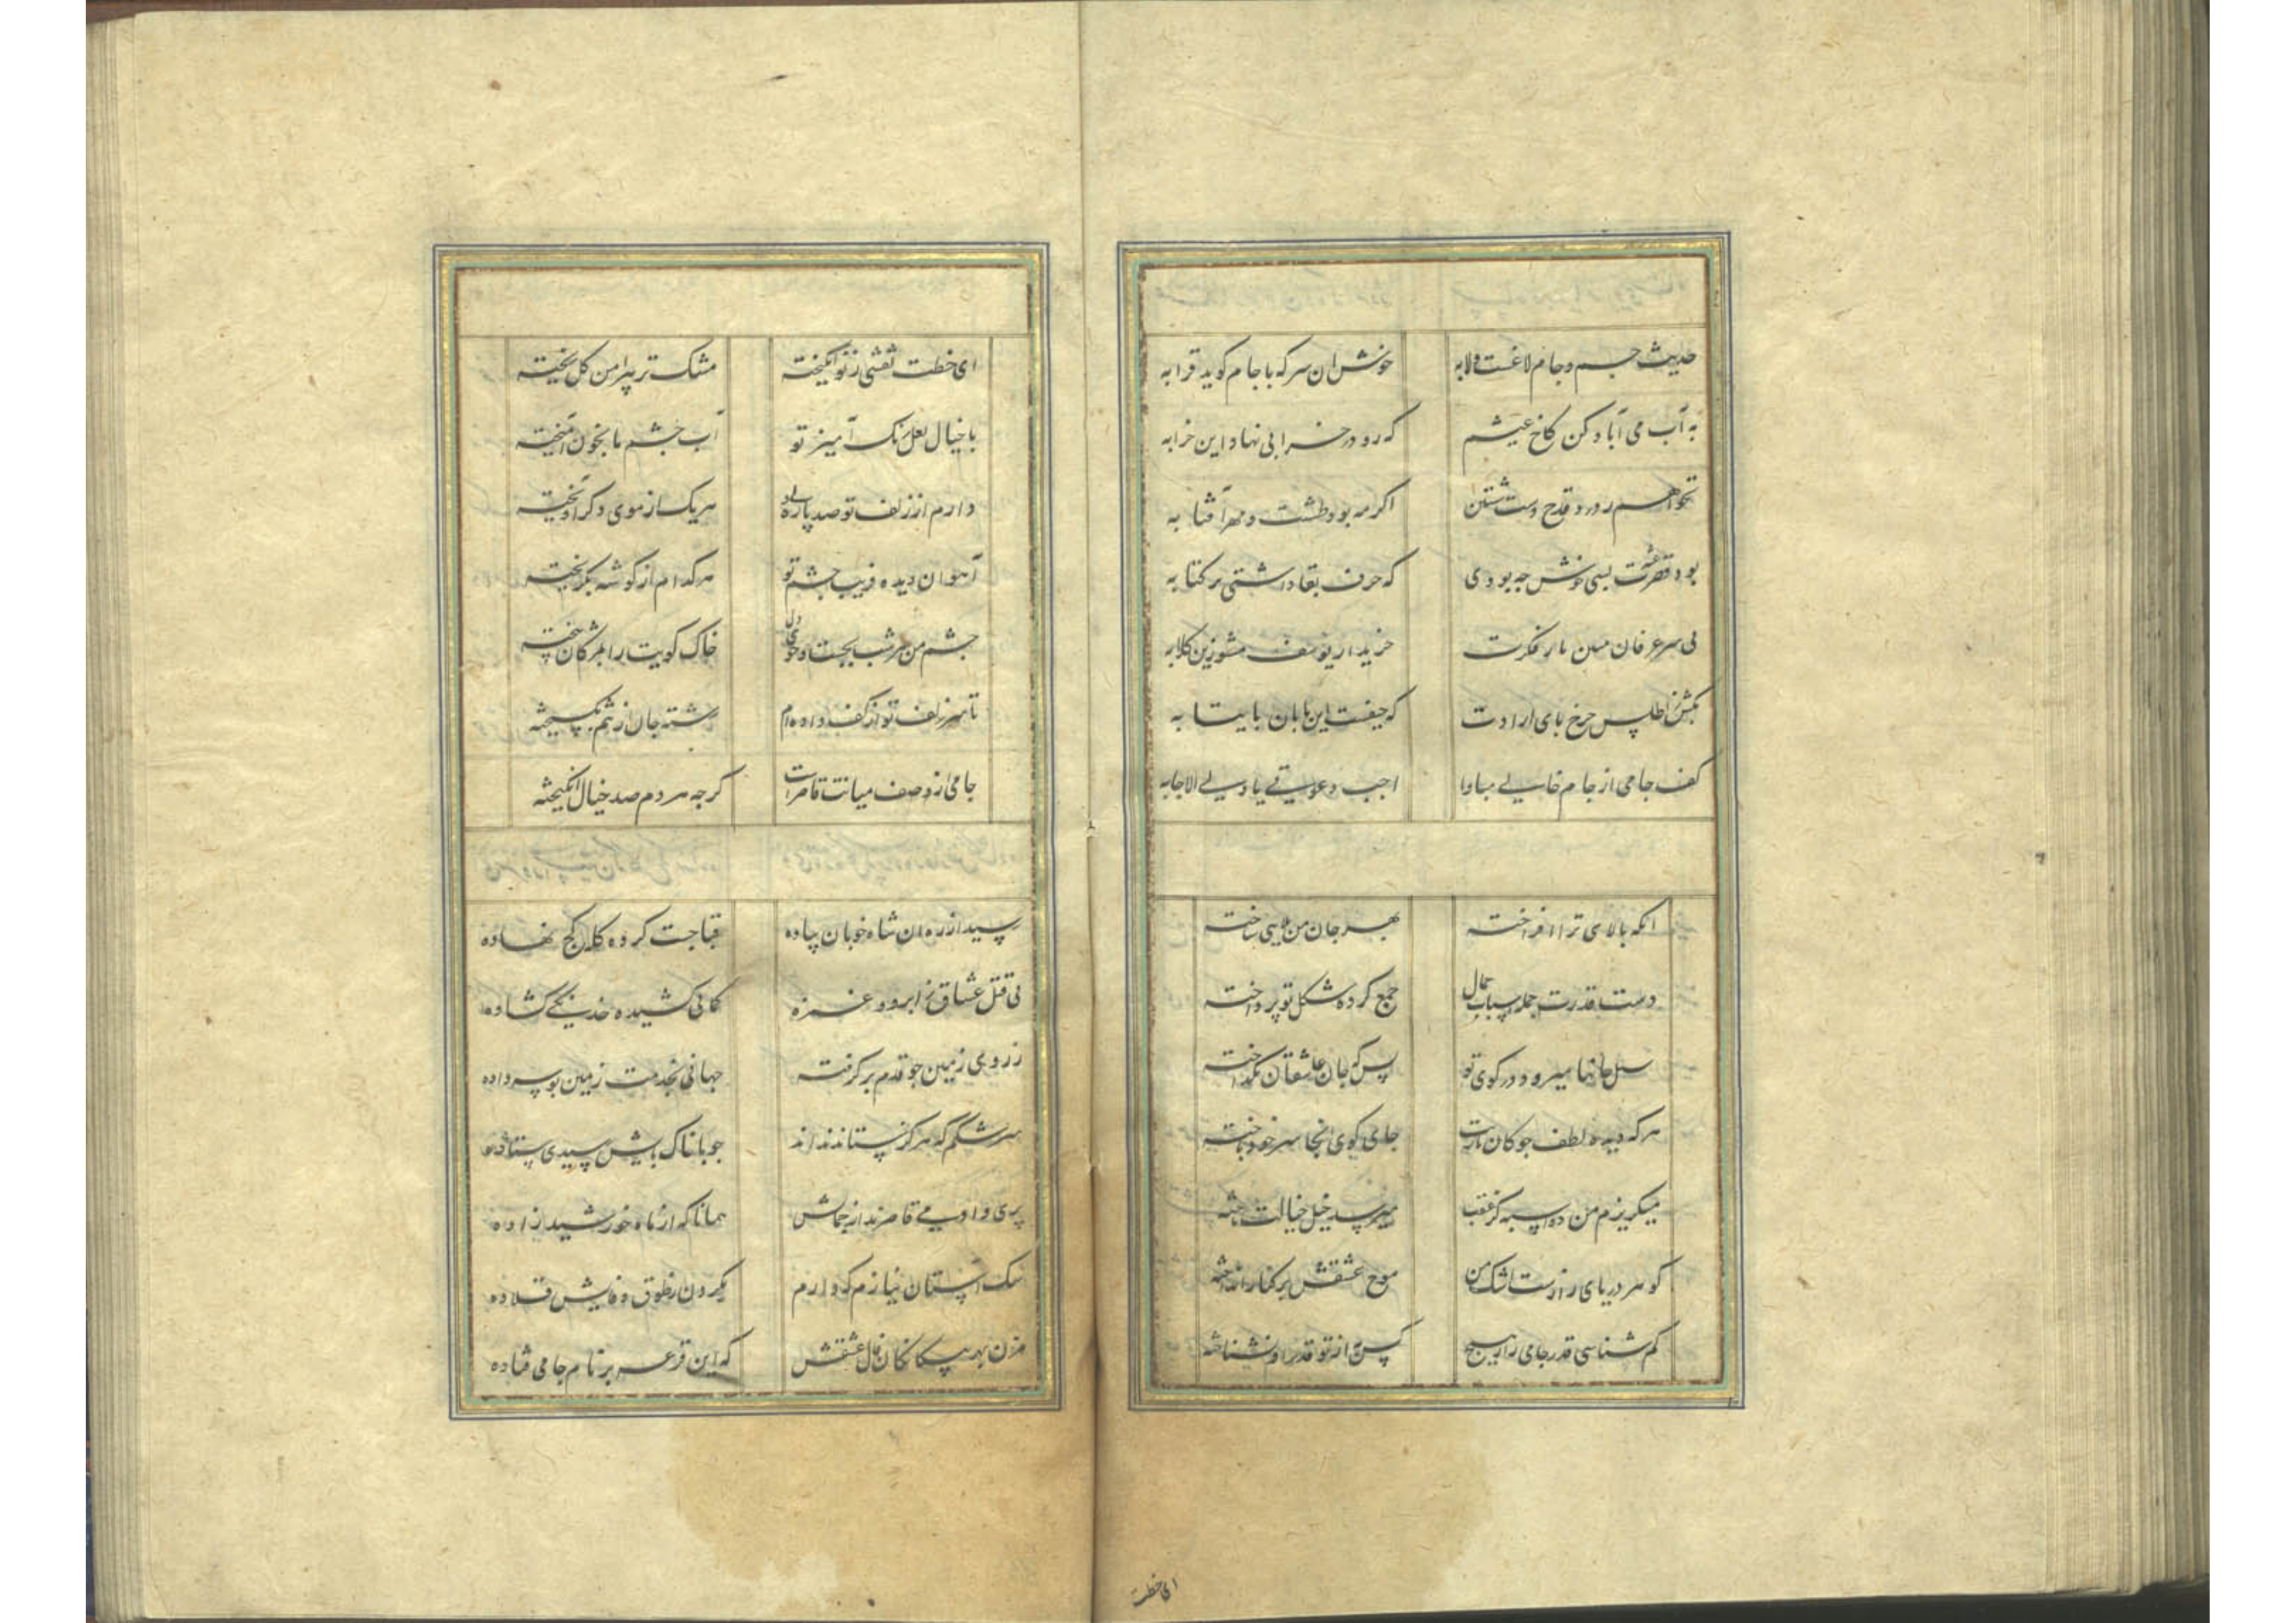 حدیث جم و جام لاغست و لابه خوش ان سر که با جام کوید قرابه
به آب می آباد کن کاخ عیشم که رو در خرابی نهاد این خرابه
نخواهم ز درد قدح دست شستن اکر مه بود طشت و مهر آفتابه
بود قصر عشرت بسی خوش چه بودی که حرف بقا داشتی بر کتابه
بی سر عرفان مبین تار فکرت خریدار یوسف مشو زین کلابه
مکش ز اطلس چرخ پای ارادت که حیفست این پا بان پایتابه
کف جامی از جام خالی مبادا اجب دعوتی یا ولی الاجابه
انکه بالای ترا افراخته بهر جان من بلایی ساخته
دست قدرت جمله اسباب جمال جمع کرده شکل تو پرداخته
سیل جانها میرود در کوی تو بس که جان عاشقان بکداخته
هر که دیده لطف جوکان بازیت جای کوی انجا سر خود باخته
میکریزم من ده اسبه کز عقب میرسد خیل خیالت تاخته
کوهر دریای رازست اشک من موج عشقش بر کنار انداخته
کم شناسی قدر جامی را ز هیچ کس به از تو قدر او نشناخته
ای خطت
ای خطت نقشی ز نو انکیخته مشک تر پیرامن کل بیخته
با خیال لعل رنک آمیز تو آب چشم ما بخون آمیخته
دارم از زلف تو صد پاره دلی هر یک از موی دکر آویخته
آهوان دیده فریب چشم تو هر کدام از کوشه بکریخته
چشم من هر شب بجست و جوی دل خاک کویت را بمژکان بیخته
تا سر زلف تو از کف داده ام رشته جان از تنم بکسیخته
جامی از وصف میانت قاصرست کرچه هر دم صد خیال انکیخته
رسید از ره ان شاه خوبان پیاده قبا چست کرده کله کج نهاده
پی قتل عشاق ز ابرو و غمزه کمانی کشیده خدنکی کشاده
ز روی زمین چو قدم بر کرفته جهانی بخدمت زمین بوسه داده
سرشکم که هرکز نیستاند اند چو با خاک پایش رسیدی ستاده
پری و ادمی قاصرند از جمالش همانا که از ماه خورشید زاده
سک آستان نیازم که دارم بکردن ز طوق وفایش قلاده
مزن بهر بیکانکان فال عشقش که این قرعه بر نام جامی فتاده